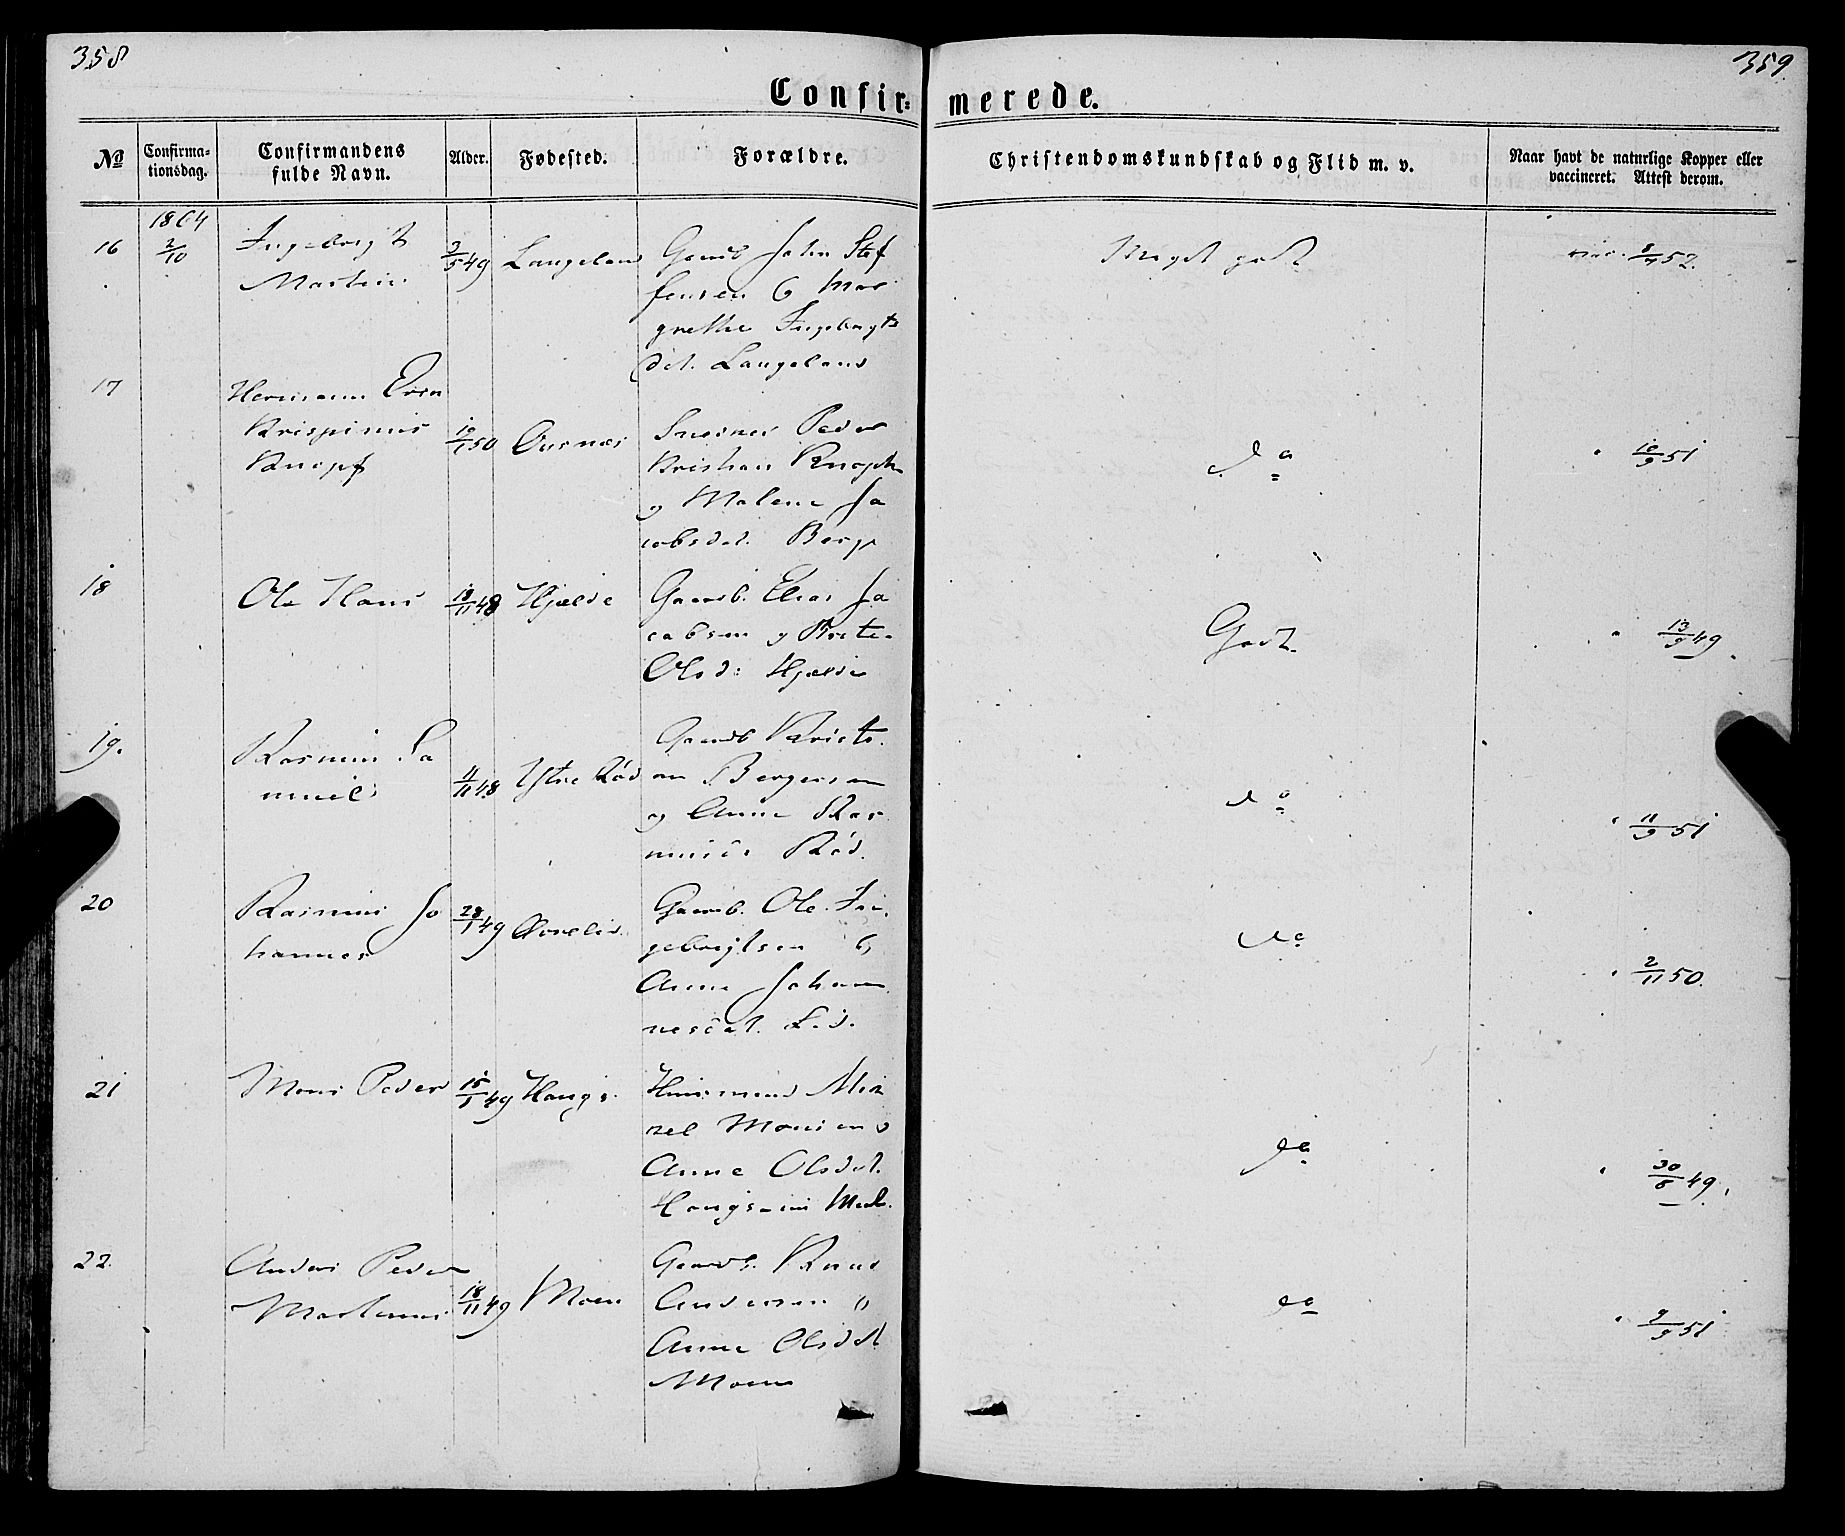 358
359.
Confir-
merede.
No
Confirma-
tionsdag.
Confirmandens
fulde Navn.
Alder.
Fødested.
Forældre.
Christendomskundskab og Flid m. v.
Naar havt de naturlige Kopper eller
vaccineret. Attest derom.
1864
16
2/10
Ingebrigt
Martin
3/5 49
Langeland
Gaardb John Stef
fensen & Mar
grethe Ingebrigts
dat. Langeland
Meget godt
vac. 8/7 52.
17
Hermann
Krispinus
Knopf
10/1 50
Snedker Peder
Kristian Knoph
og Malene Ja
cobsdat. Berg
do
" 10/9 51
18
Ole Hans
18/11 48
Hjelde
Gaardb. Elias Ja
cobsen og Brite
Olsd: Hjelde
Godt.
" 13/9 49
19.
Rasmus Sa
muel
11/11 48
Ytre Rød
Gaardb Kristi
an Bergersen
og Anne Ras
musd. Rød.
do
" 11/9 51
20
Rasmus Jo
hannes
28/1 49
Gaardb. Ole In
gebrigtsen &
Anne Johan
nesdat. Lid.
do
" 2/11 50.
21
Mons Peder
15/1 49
Haugs
Huusmand Mik
kel Monsen &
Anne Olsdat.
do
" 30/8 49.
22.
Anders Peder
Martinus
18/11 49
Moen
Gaardb. Knud
Andersen &
Anne Olsdat
Moen
do
" 9/9 51